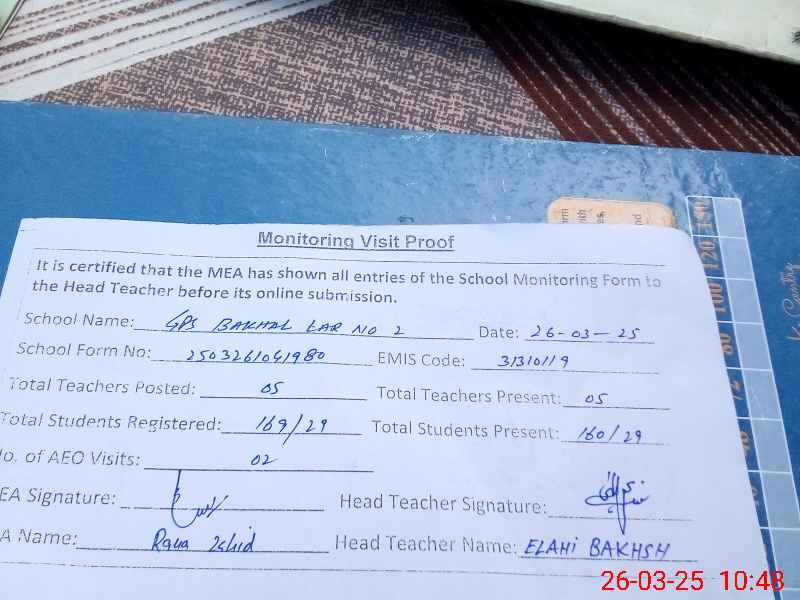 Monitoring Visit Proof
It is certified that the MEA has shown all entries of the School Monitoring Form to
the Head Teacher before its online submission.
School Name: GPS BAKHAL LAR NO 2 Date: 26-03-25
School Form No: 2503261041980 EMIS Code: 31310119
Total Teachers Posted: 05 Total Teachers Present: 05
Total Students Registered: 169/29 Total Students Present: 160/29
No. of AEO Visits: 02
EA Signature: Head Teacher Signature:
A Name: Rana Zahid Head Teacher Name: ELAHI BAKHSH
26-03-25 10:43
140
120
100
80